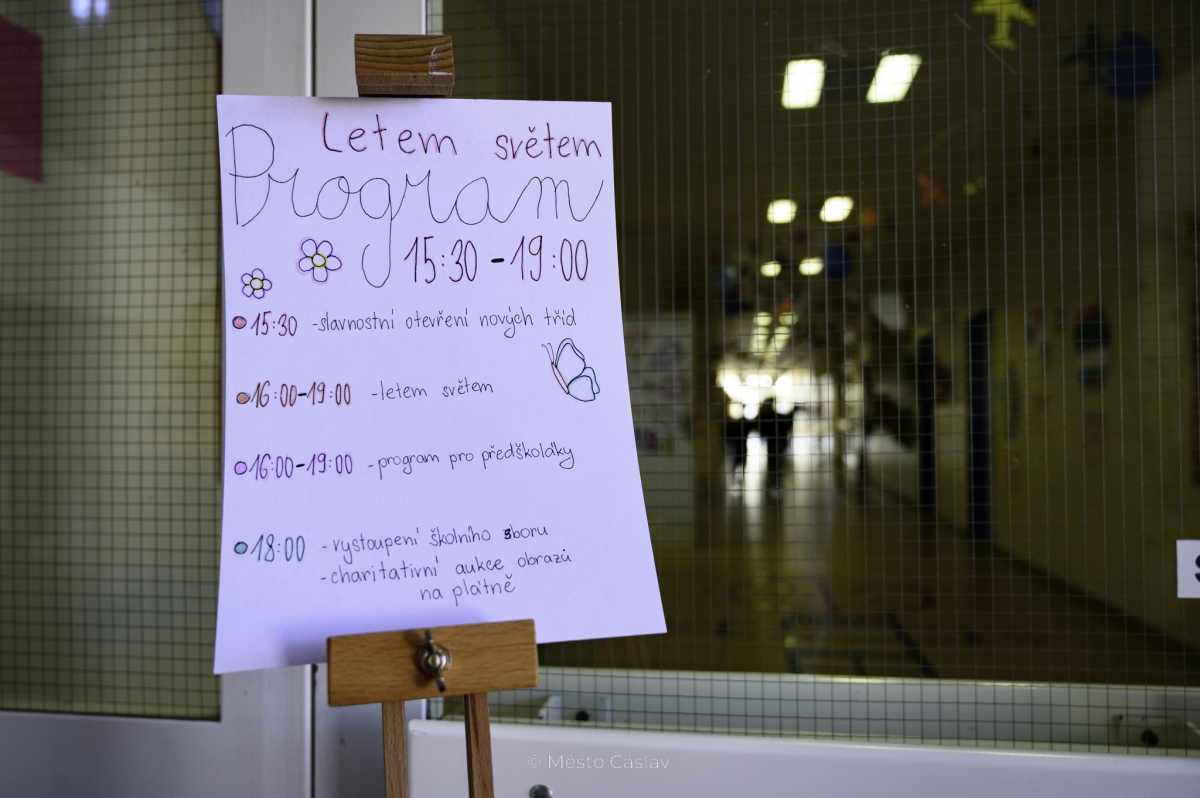 Letem světem
Program
15:30 - 19:00
15:30 - slavnostní otevření nových tříd
16:00-19:00 - letem světem
16:00-19:00 - program pro předškoláky
18:00 - vystoupení školního sboru
- charitativní aukce obrazů
na plátně
© Město Čáslav